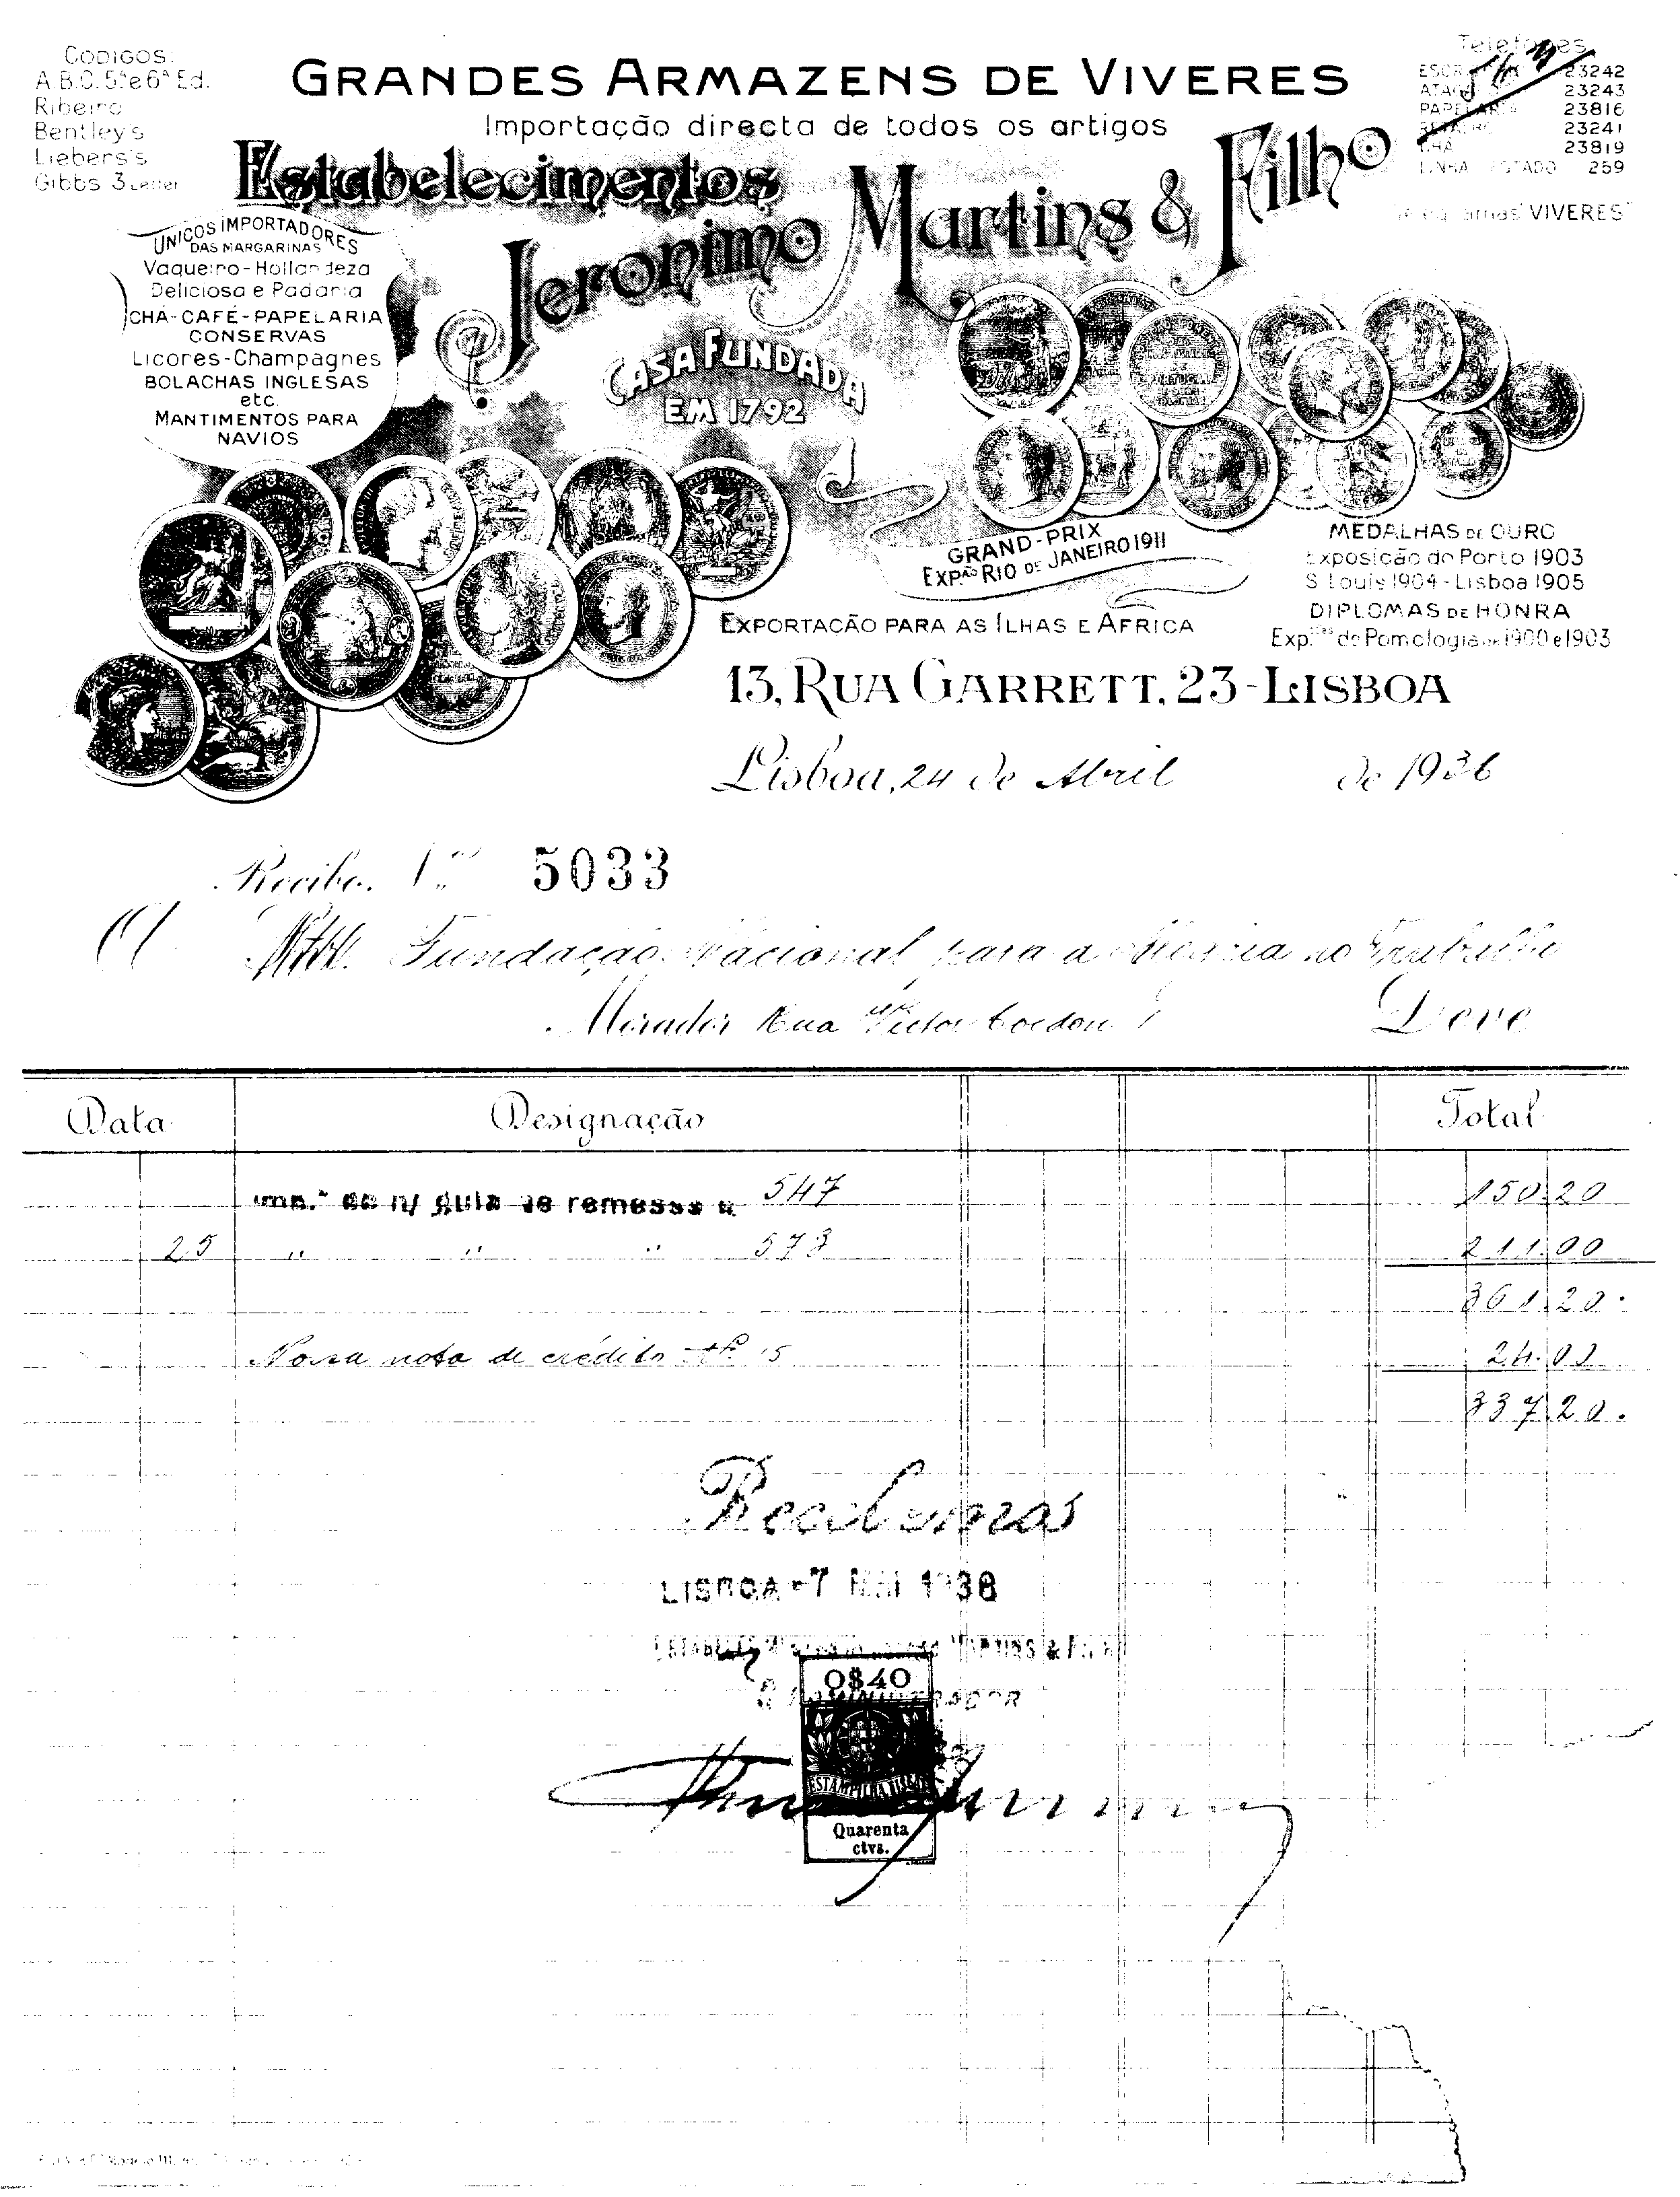 CODIGOS:
A.B.C. 5ª e 6ª Ed.
Ribeiro
Bentley's
Liebers's
Gibbs 3 Letter
GRANDES ARMAZENS DE VIVERES
Importação directa de todos os artigos
Estabelecimentos
Jeronimo Martins & Filho
Telefones
23242
23243
PAPELARIA 23816
23241
CHÁ 23819
LINHA ESTADO 259
"VIVERES"
UNICOS IMPORTADORES
DAS MARGARINAS
Vaqueiro-Hollandeza
Deliciosa e Padaria
CHÁ-CAFÉ-PAPELARIA
CONSERVAS
Licores-Champagnes
BOLACHAS INGLESAS
etc.
MANTIMENTOS PARA
NAVIOS
CASA FUNDADA
EM 1792
GRAND-PRIX
EXP.ÃO RIO DE JANEIRO 1911
MEDALHAS DE OURO
Exposição do Porto 1903
S. Louis 1904-Lisboa 1905
DIPLOMAS DE HONRA
Exp.ões de Pomologia de 1900 e 1903
EXPORTAÇÃO PARA AS ILHAS E AFRICA
13, RUA GARRETT, 23-LISBOA
Lisboa, 24 de Abril de 1936
Recibo N.º 5033
A Fundação Nacional para a Alegria no Trabalho
Morador Rua Victor Cordon 1 Deve
Data Designação Total
n/ guia de remessa 547 150.20
25 " " " 573 211.00
361.20.
Nossa nota de crédito nº 15 24.00
337.20.
Recebemos
LISBOA -7 MAI 1936
MARTINS & FILHO
O ADMINISTRADOR
0$40
ESTAMPILHA FISCAL
Quarenta
ctvs.